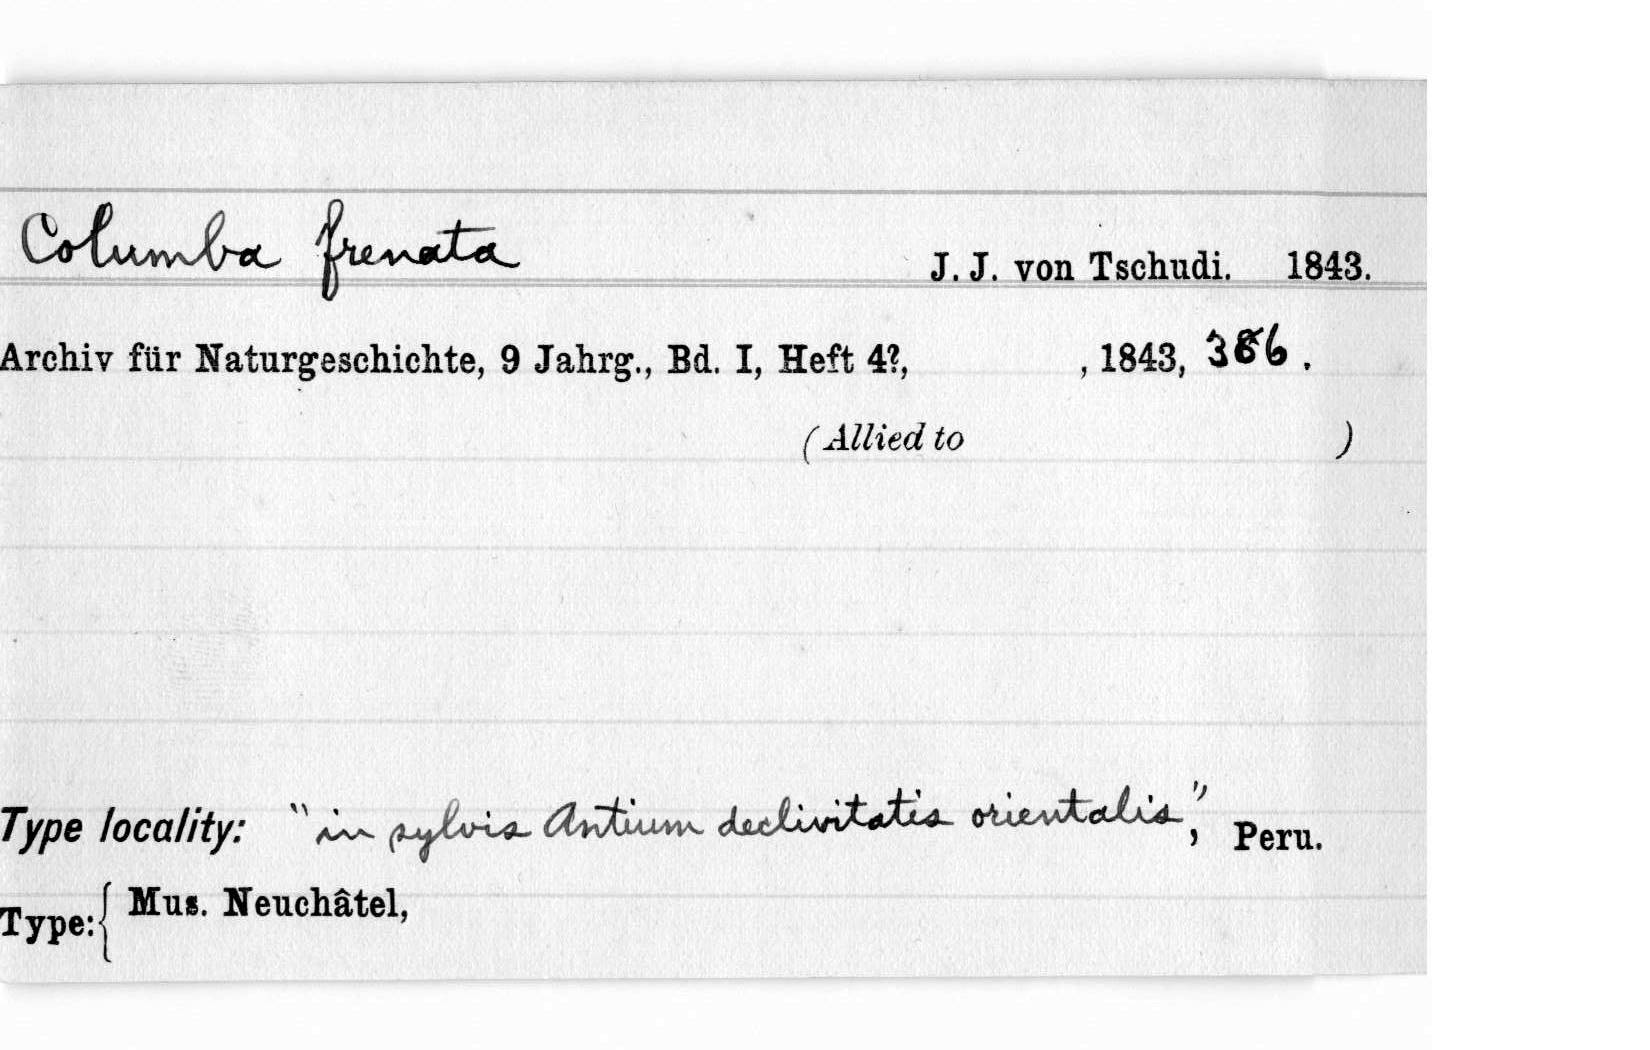 Columba frenata J. J. von Tschudi. 1843.
Archiv für Naturgeschichte, 9 Jahrg., Bd. I, Heft 4?, , 1843, 386 .
(Allied to )
Type locality: "in sylvis Antium declivitatis orientalis", Peru.
Type:{ Mus. Neuchâtel,